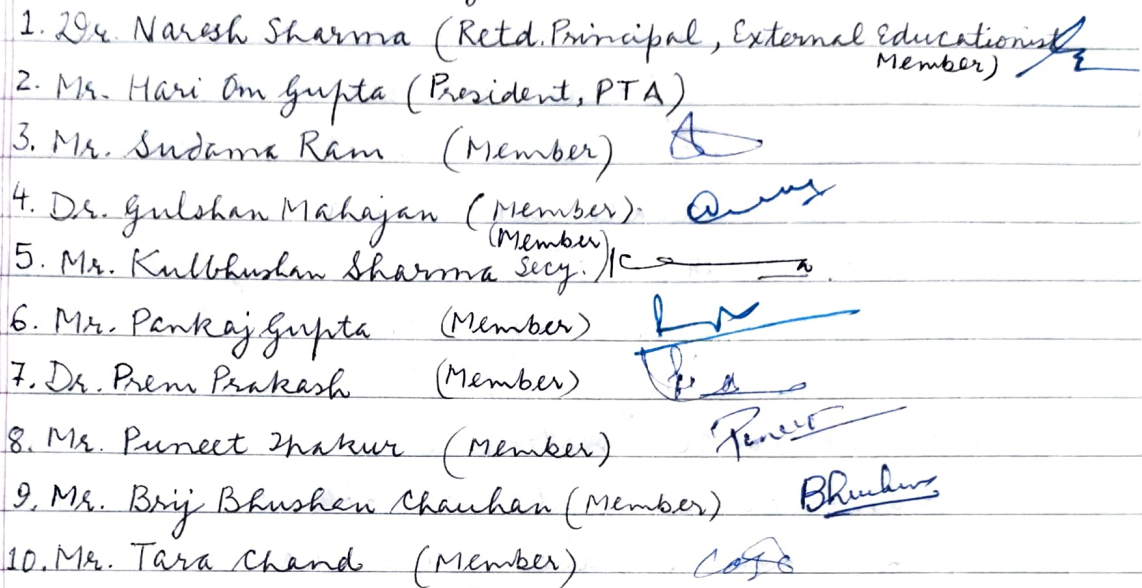 1. Dr. Naresh Sharma (Retd. Principal, External Educationist
Member)
2. Mr. Hari Om Gupta (President, PTA)
3. Mr. Sudama Ram (Member)
4. Dr. Gulshan Mahajan (Member)
(Member)
5. Mr. Kulbhushan Sharma Secy.)
6. Mr. Pankaj Gupta (Member)
7. Dr. Prem Prakash (Member)
8. Mr. Puneet Thakur (Member) Puneet
9. Mr. Brij Bhushan Chauhan (Member)
10. Mr. Tara Chand (Member)